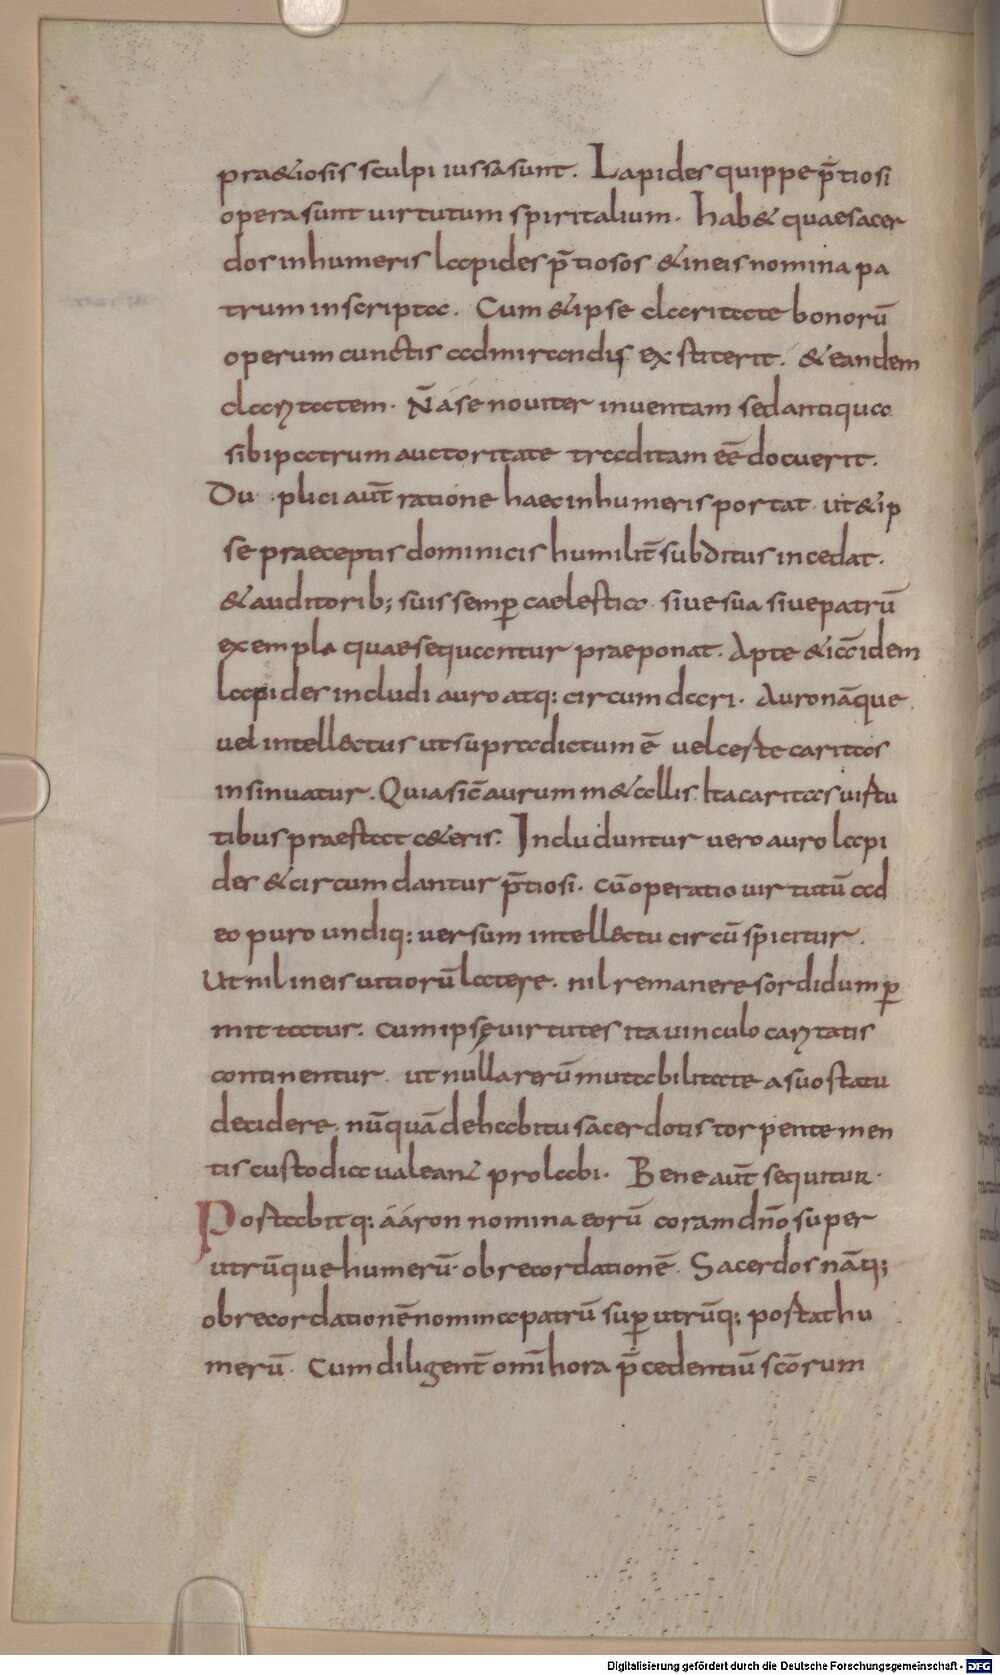 pra&iosis sculpi iussasunt. Lapides quippe p̄tiosi
opera sunt uirtutum spiritalium. hab& quae sacer
dos in humeris lapides p̄tiosos & in eis nomina pa
trum inscripta. Cum & ipse claritate bonorū
operum cunctis admirandis extiterit. & eandem
clarytatem. N̄ á se nouiter inuentam sed antiqua
sibi patrum auctoritate traditam eē docuerit.
Du plici aut̄ ratione haec in humeris portat. ut & ip
se praeceptis dominicis humilit̄ subditus incedat.
& auditorib; suis semp̄ caelestia. siue sua siue patrū
exempla quae sequantur praeponat. Apte & iā idem
lapides includi auro atq; circumdari. Auro nāque
uel intellectus ut supra dictum ē uel certe caritas
insinuatur. Quia sic̄ aurum m&allis. Ita caritas uirtu
tibus praestat c&eris. Includuntur uero auro lapi
des & circumdantur p̄tiosi. cū operatio uirtutū ad
eo puro undiq; uersum intellectu circūspicitur.
Ut nil in eis uitiorū latere. nil remanere sordidum p̄
mittatur. cum ipsę uirtutes ita uinculo carytatis
continentur. ut nulla rerū mutabilitate a suo statu
decidere. nūquā de habitu sacerdotis torpente men
tis custodia ualean̄ prolabi. Bene aut̄ sequitur.
Postabitq; ááron nomina eorū coram dn̄o super
utrūque humerū. ob recordationē. Sacerdos nāq;
ob recordationē nomina patrū sup̄ utrūq; postat hu
merū. Cum diligent̄ om̄i hora p̄cedentiū scōrum
Digitalisierung gefördert durch die Deutsche Forschungsgemeinschaft - DFG